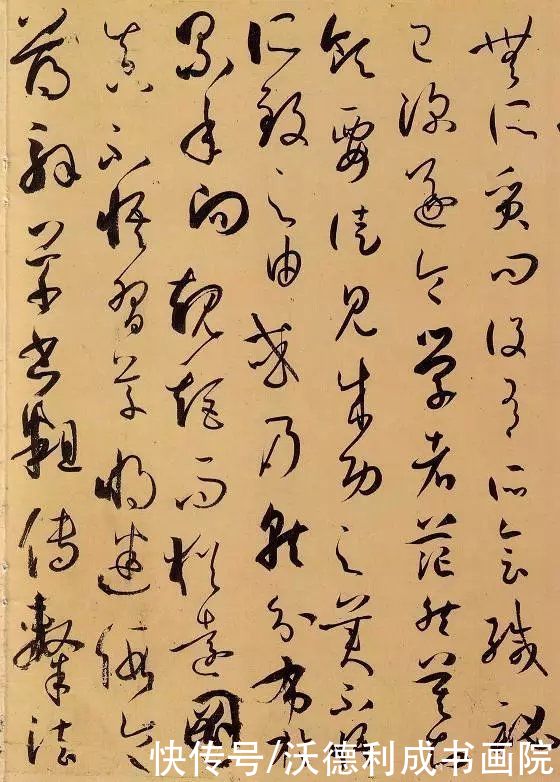 無所質問設有所會緘秘
已深遂令學者茫然莫知
領要徒見成功之美不悟
所致之由或乃就分布於
累年向規矩而猶遠圖
真不悟習草將迷假令
薄解草書粗傳隸法
快传号/沃德利成书画院